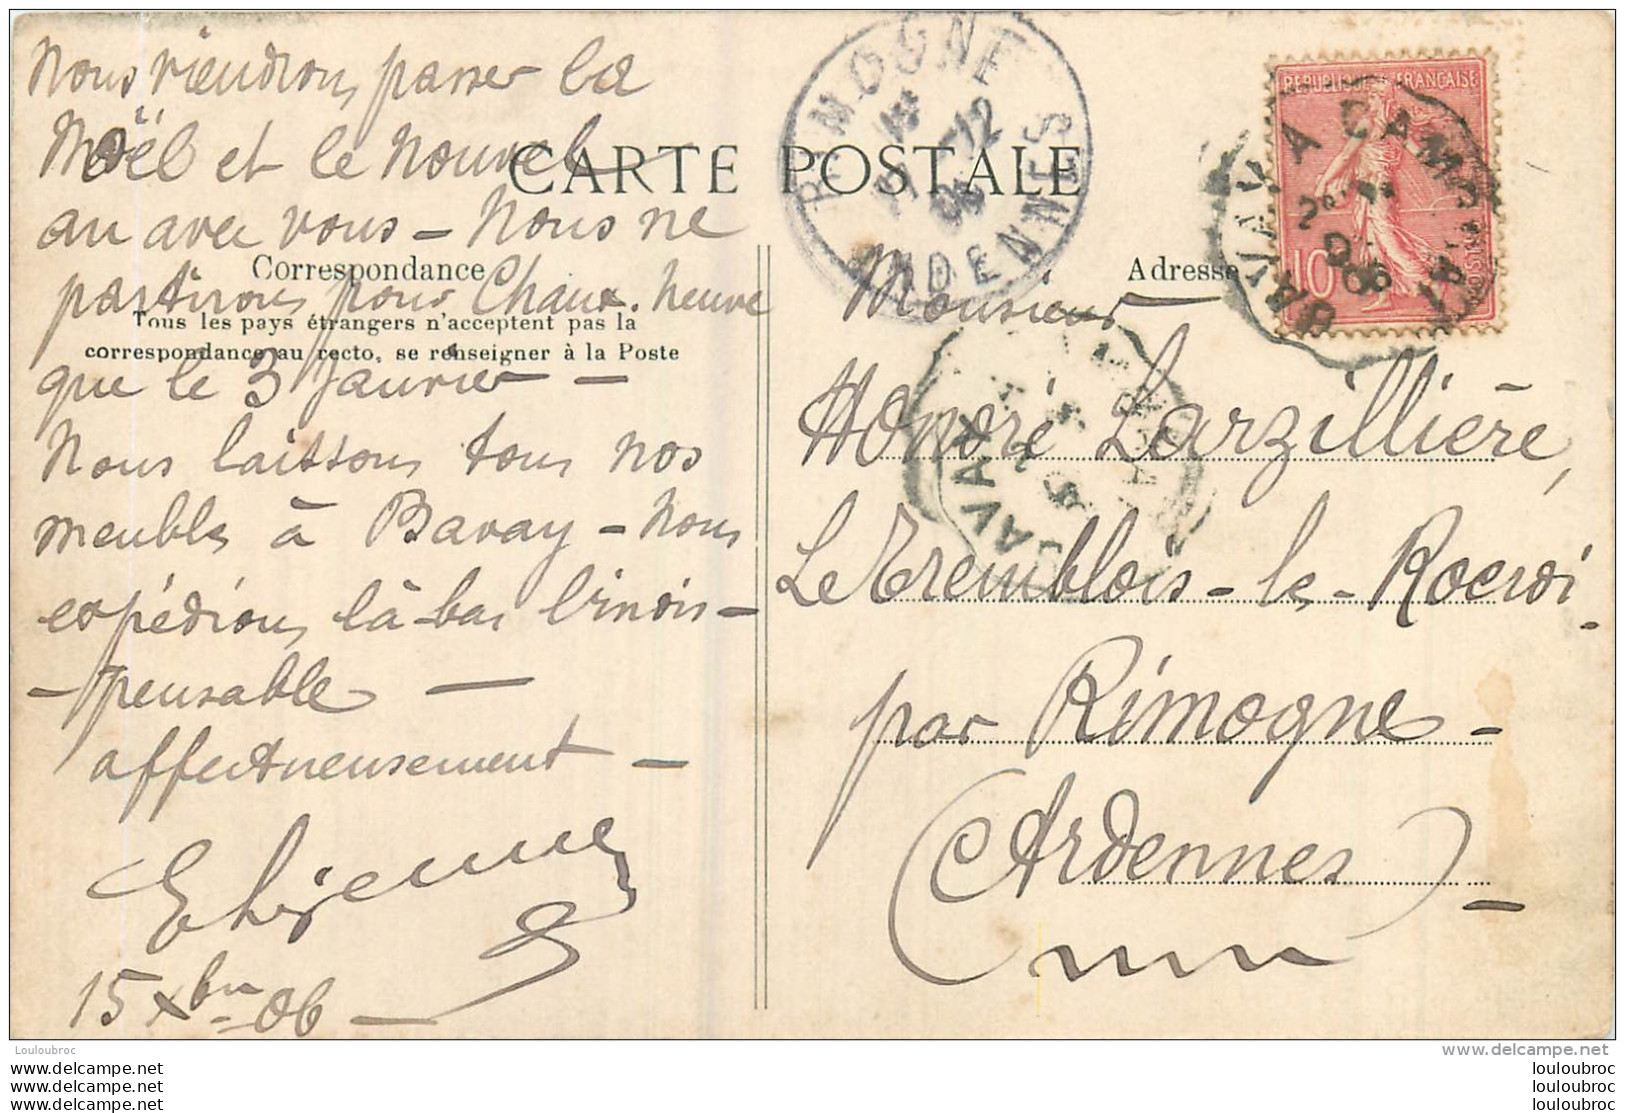 Nous viendrons passer la
Noël et le nouvel
an avec vous — Nous ne
partirons pour Chaux-neuve
que le 3 Janvier —
Nous laissons tous nos
meubles à Bavay — Nous
expédions là-bas l'indis—
—pensable —
affectueusement —
15 Xbre 06 —
CARTE POSTALE
Correspondance
Tous les pays étrangers n'acceptent pas la
correspondance au recto, se renseigner à la Poste
RIMOGNE
12
06
ARDENNES
Adresse
REPUBLIQUE FRANÇAISE
10
POSTES
BAVAY A CAMBRAI
2°
06
BAVAY
Monsieur
Honoré Larzillière,
Le Tremblois-le-Rocroi-
par Rimogne —
(Ardennes) —
Louloubroc
www.delcampe.net
louloubroc
www.delcampe.net
www.delcampe.net
www.delcampe.net
louloubroc
louloubroc
louloubroc